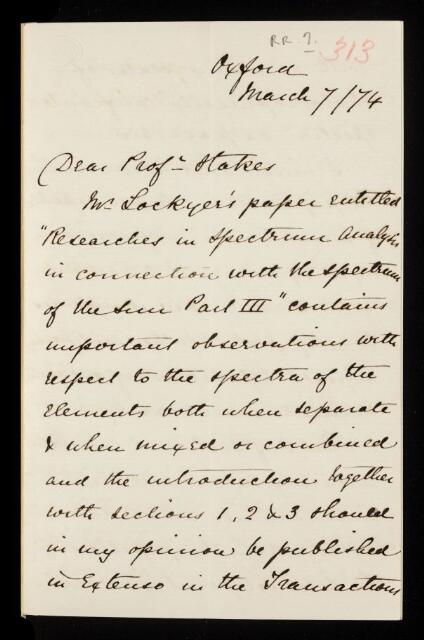 RR. 7. 313
Oxford
March 7/74
Dear Prof.r Stokes
Mr Lockyer's paper entitled
"Researches in Spectrum Analysis
in connection with the spectrum
of the Sun Part III" contains
important observations with
respect to the spectra of the
Elements both when separate
& when mixed or combined
and the introduction together
with sections 1, 2 & 3 should
in my opinion be published
in Extenso in the Transactions